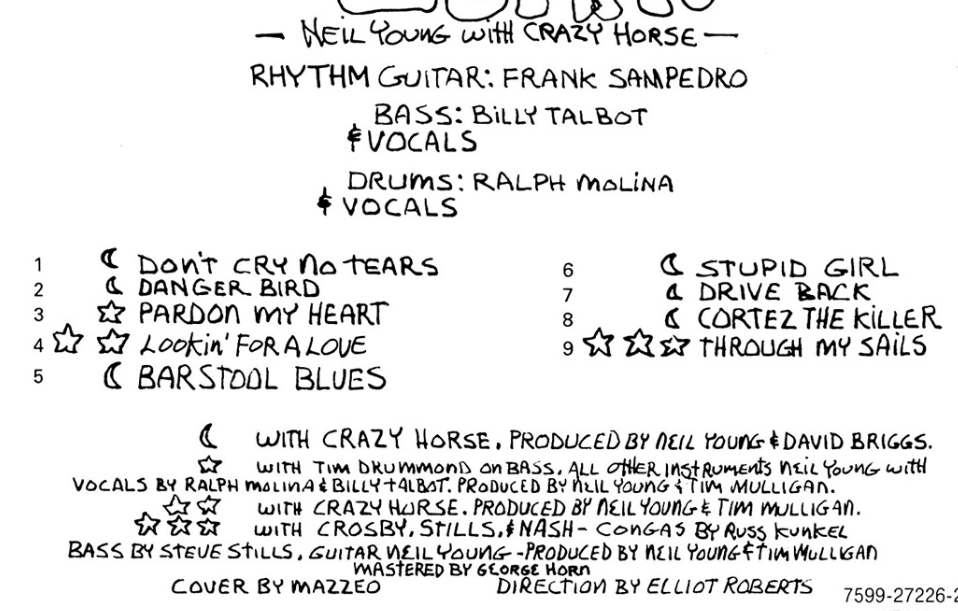 — NEIL YOUNG WITH CRAZY HORSE —
RHYTHM GUITAR: FRANK SAMPEDRO
BASS: BILLY TALBOT
& VOCALS
DRUMS: RALPH MOLINA
& VOCALS
1 ☾ DON'T CRY NO TEARS
2 ☾ DANGER BIRD
3 ☆ PARDON MY HEART
4 ☆ ☆ LOOKIN' FOR A LOVE
5 ☾ BARSTOOL BLUES
6 ☾ STUPID GIRL
7 ☾ DRIVE BACK
8 ☾ CORTEZ THE KILLER
9 ☆ ☆ ☆ THROUGH MY SAILS
☾ WITH CRAZY HORSE. PRODUCED BY NEIL YOUNG & DAVID BRIGGS.
☆ WITH TIM DRUMMOND ON BASS. ALL OTHER INSTRUMENTS NEIL YOUNG WITH
VOCALS BY RALPH MOLINA & BILLY TALBOT. PRODUCED BY NEIL YOUNG & TIM MULLIGAN.
☆ ☆ WITH CRAZY HORSE. PRODUCED BY NEIL YOUNG & TIM MULLIGAN.
☆ ☆ ☆ WITH CROSBY, STILLS, & NASH - CONGAS BY RUSS KUNKEL
BASS BY STEVE STILLS, GUITAR NEIL YOUNG - PRODUCED BY NEIL YOUNG & TIM MULLIGAN
MASTERED BY GEORGE HORN
COVER BY MAZZEO DIRECTION BY ELLIOT ROBERTS
7599-27226-2